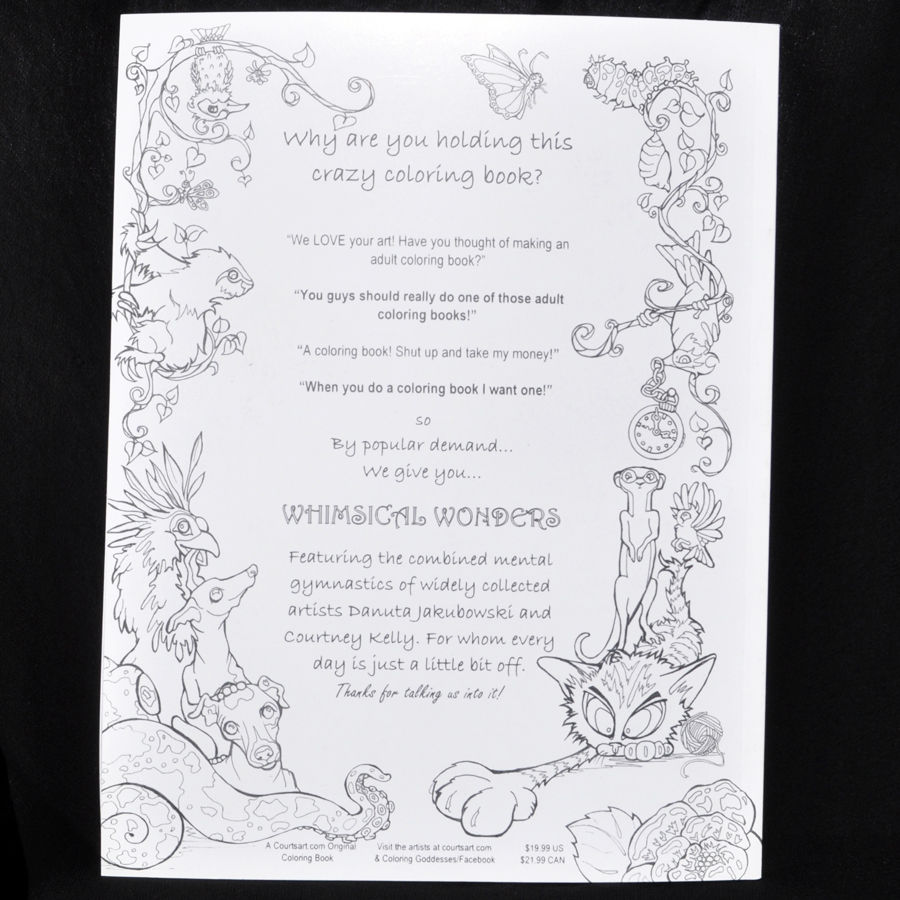 Why are you holding this
crazy coloring book?
“We LOVE your art! Have you thought of making an
adult coloring book?”
“You guys should really do one of those adult
coloring books!”
“A coloring book! Shut up and take my money!”
“When you do a coloring book I want one!”
so
By popular demand...
We give you...
WHIMSICAL WONDERS
Featuring the combined mental
gymnastics of widely collected
artists Danuta Jakubowski and
Courtney Kelly. For whom every
day is just a little bit off.
Thanks for talking us into it!
A Courtsart.com Original
Coloring Book
Visit the artists at courtsart.com
& Coloring Goddesses/Facebook
$19.99 US
$21.99 CAN